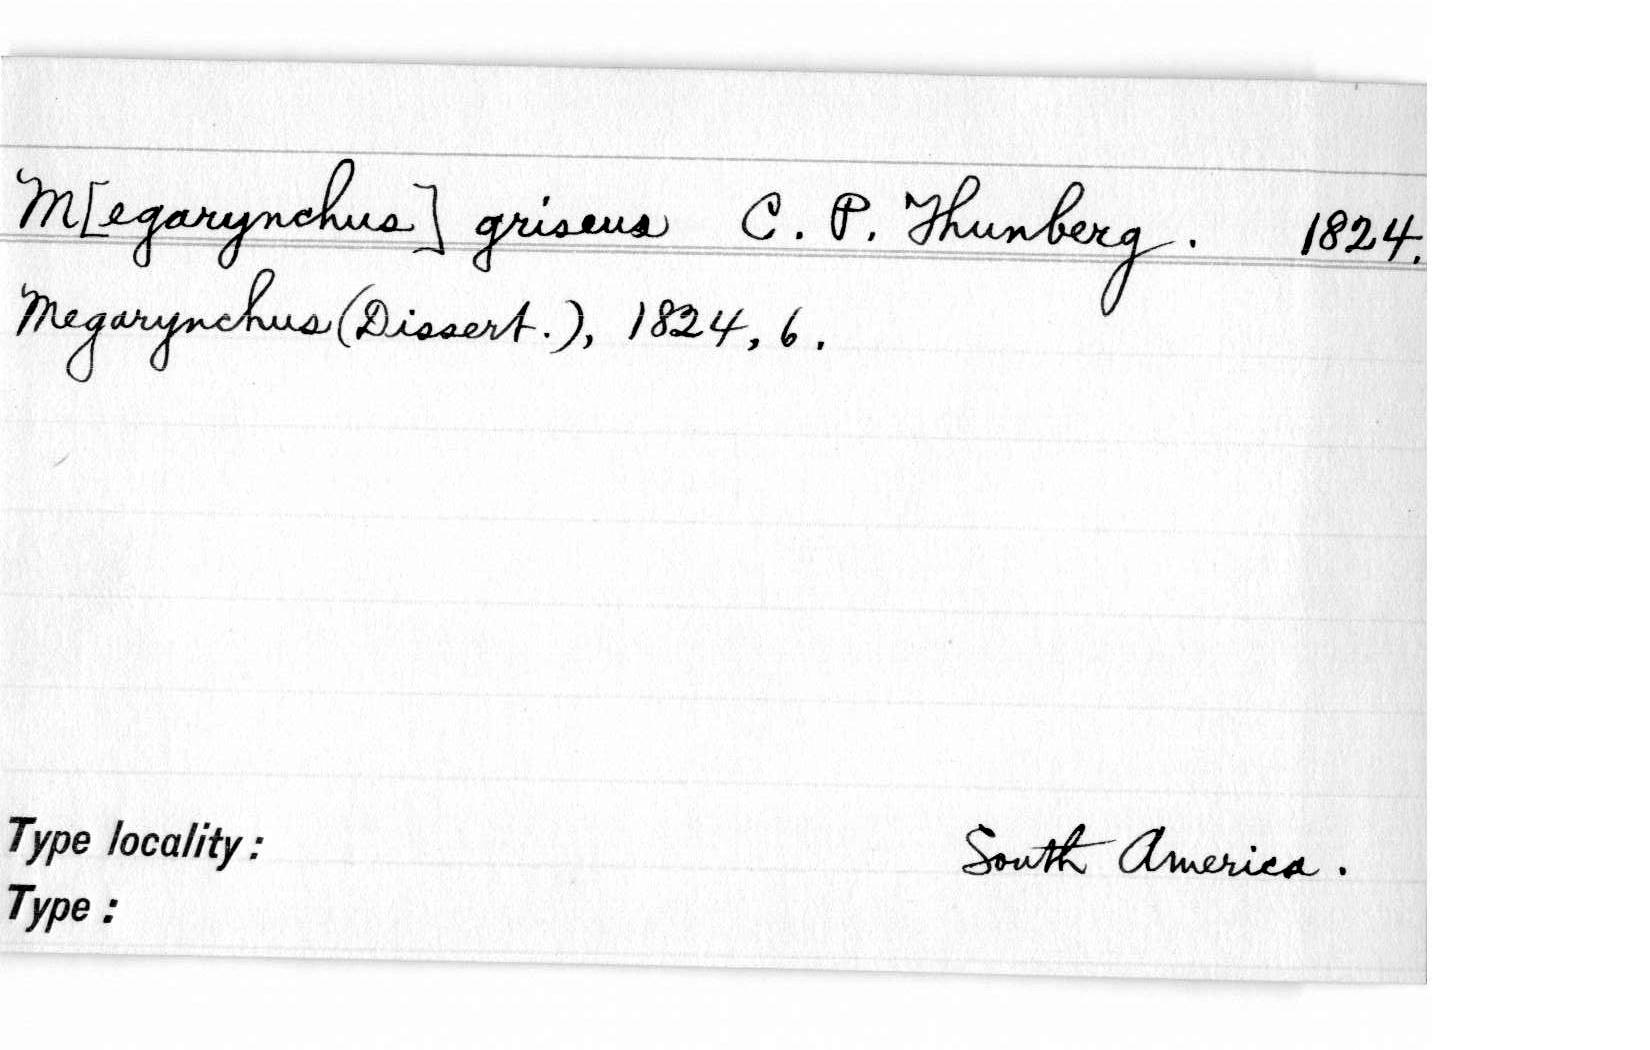 M[egarynchus] griseus C. P. Thunberg. 1824.
Megarynchus (Dissert.), 1824, 6.
Type locality: South America.
Type: